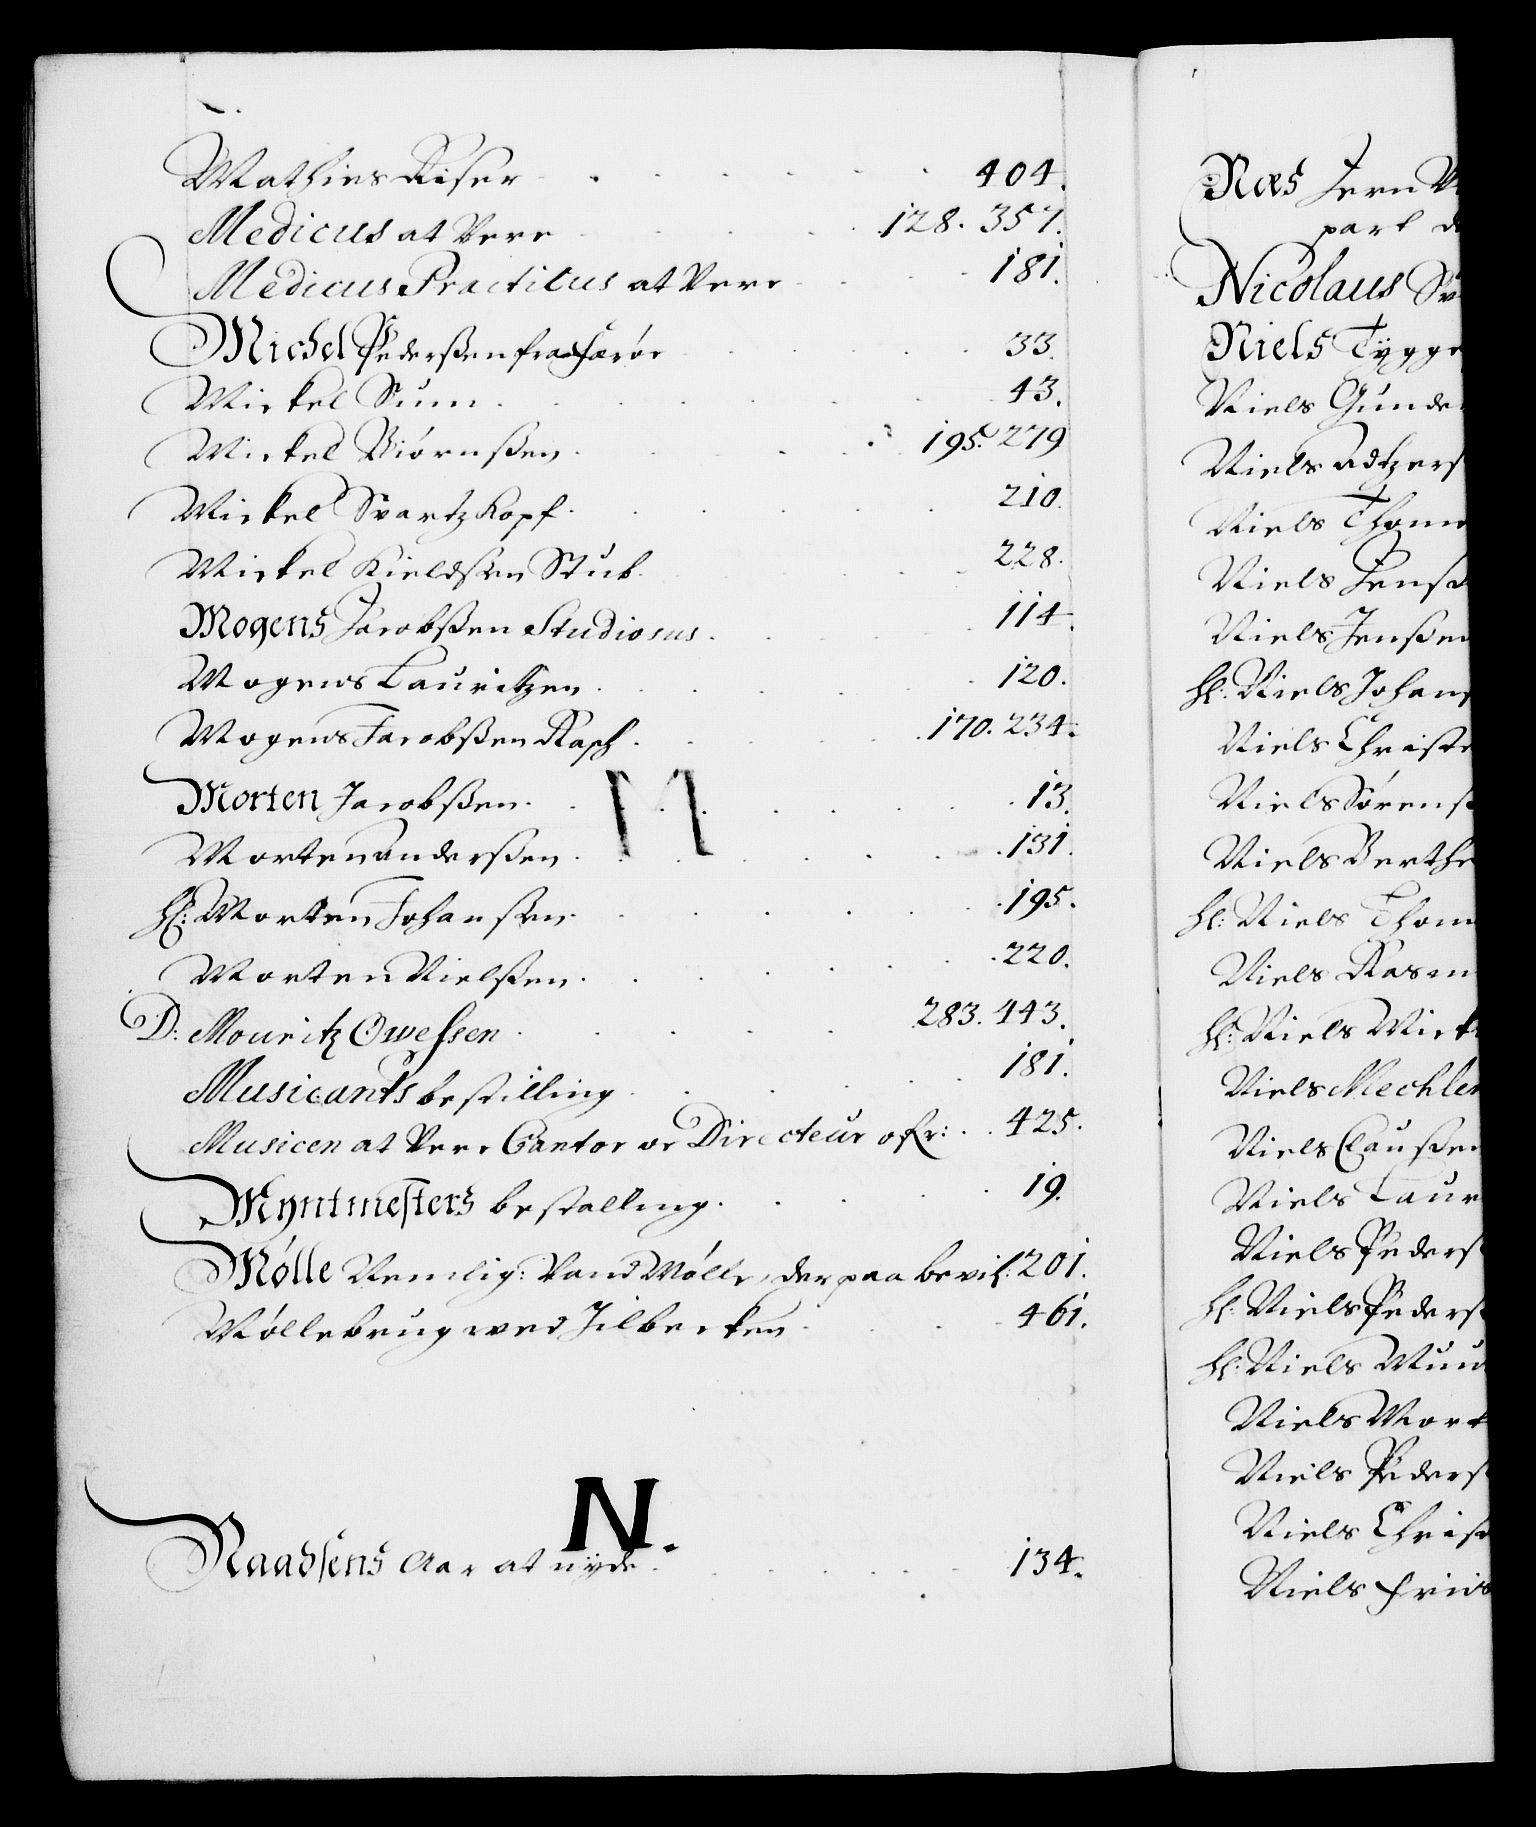 Mathies Riser 404.
Medicus at Vere 128. 357.
Medicus Practicus at Vere 181.
Michel Pederßen fra Færøe 33.
Mickel Sum 43.
Mickel Biørnßen 195. 279
Mickel Svartzkopf 210.
Mickel Kieldsen Stub 228.
Mogens Jacobßen Studiosus 114.
Mogens Lauritzen 120.
Mogens Jacobßen Rasch 170. 234.
M
Morten Jacobßen 13.
Morten Anderßen 131.
Hl: Morten Johansen 195.
Morten Nielßen 220.
D: Mouritz Owessen 283. 443.
Musicants bestilling 181.
Musicen at Vere Cantor oc Directeur ofr: 425.
Myntmesters bestalling 19.
Mølle Nemlig: Vand Mølle, der paa bevil: 201.
Møllebrug wed Jilbecken 461.
N.
Naadsens Aar at nyde 134.
Næs Jern
part
Nicolaus
Niels Tygge
Niels Gunde
Niels Adtzers
Niels Thom
Niels Jens
Niels Jenßen
Hl: Niels Johans
Niels Christe
Niels Sørens
Niels Berthe
Hl: Niels Thom
Niels Rasm
Hl: Niels Micke
Niels Mechlen
Niels Claußen
Niels Laur
Niels Peders
Hl: Niels Peders
Hl: Niels Muu
Niels Mort
Niels Peders
Niels Chris
Niels Friis